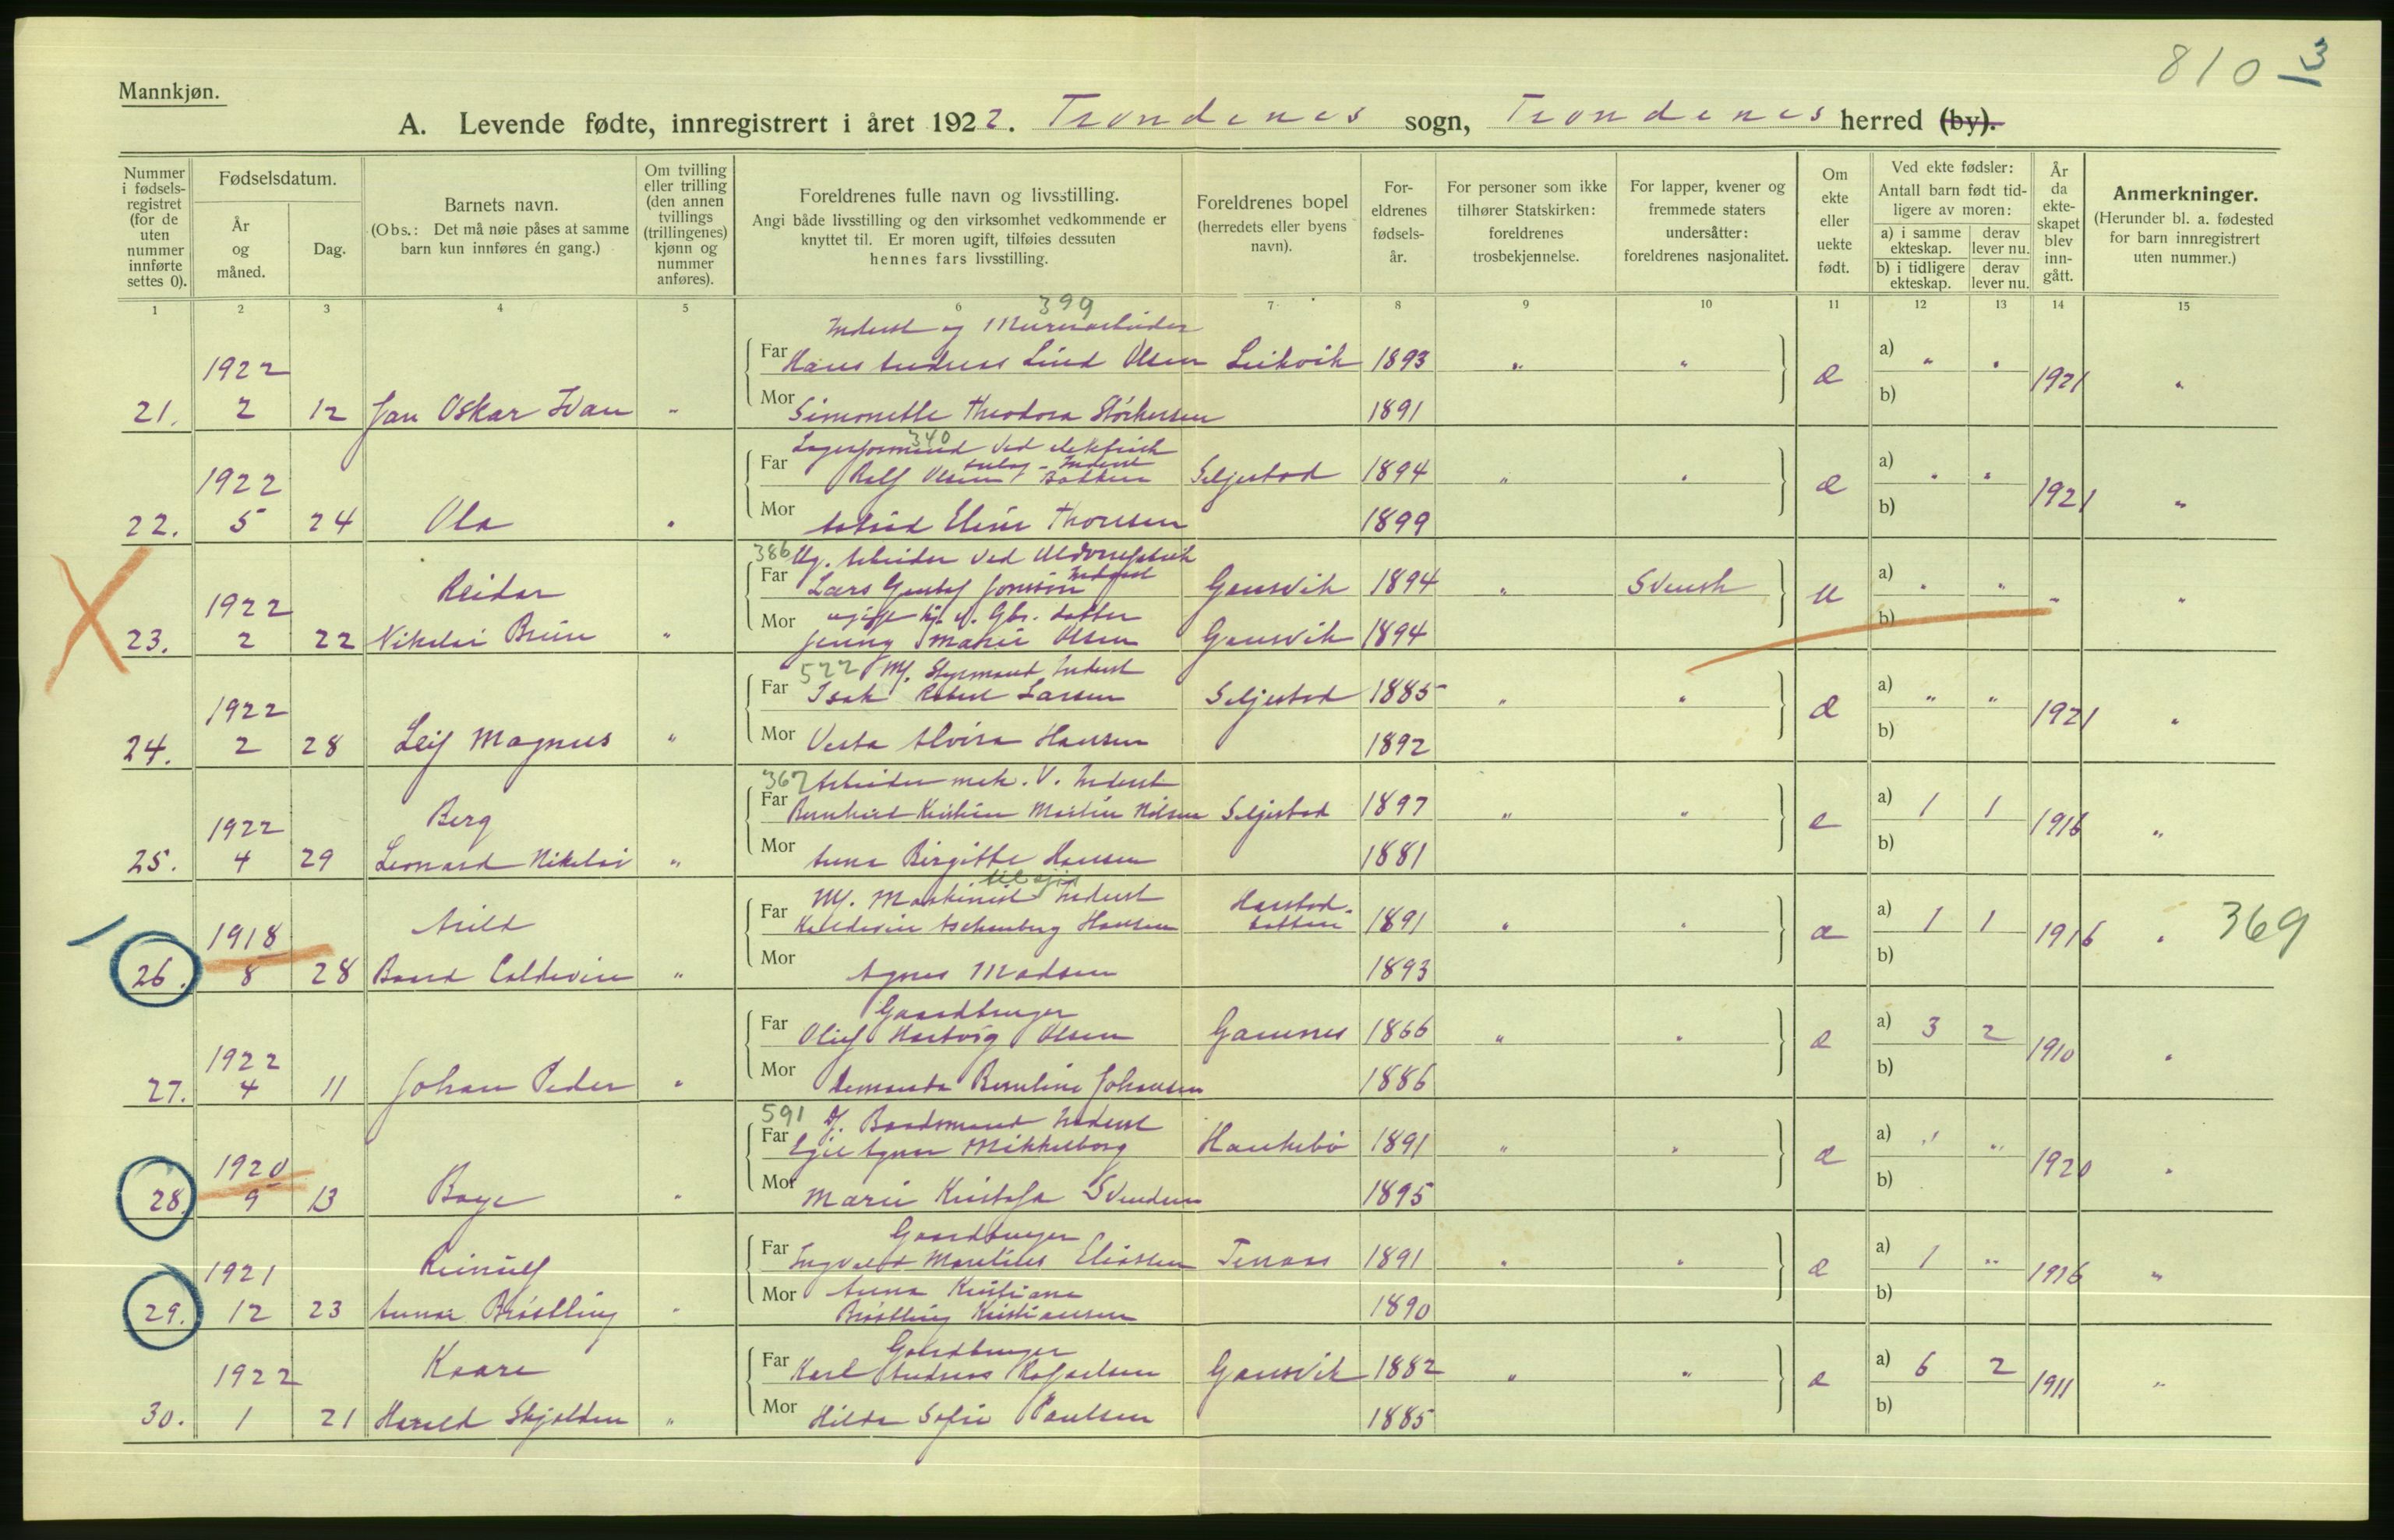 810 3
Mannkjøn.
A. Levende fødte, innregistrert i året 1922. Trondenes sogn, Trondenes herred (by).
Nummer i fødsels-registret (for de uten nummer innførte settes 0).
Fødselsdatum.
År og måned.
Dag.
Barnets navn.
(Obs.: Det må nøie påses at samme barn kun innføres én gang.)
Om tvilling eller trilling (den annen tvillings (trillingenes) kjønn og nummer anføres).
Foreldrenes fulle navn og livsstilling.
Angi både livsstilling og den virksomhet vedkommende er knyttet til. Er moren ugift, tilføies dessuten hennes fars livsstilling.
Foreldrenes bopel (herredets eller byens navn).
For-eldrenes fødsels-år.
For personer som ikke tilhører Statskirken: foreldrenes trosbekjennelse.
For lapper, kvener og fremmede staters undersåtter: foreldrenes nasjonalitet.
Om ekte eller uekte født.
Ved ekte fødsler:
Antall barn født tid-ligere av moren:
a) i samme ekteskap.
derav lever nu.
b) i tidligere ekteskap.
derav lever nu.
År da ekte-skapet blev inn-gått.
Anmerkninger.
(Herunder bl. a. fødested for barn innregistrert uten nummer.)
1 2 3 4 5 6 7 8 9 10 11 12 13 14 15
399
Inderst og Murerarbeider
Far Hans Andreas Lind Olsen Leikvik 1893 " " a) " "
1922 æ 1921 "
21. 2 12 Jan Oskar Ivan " Mor Simonette Theodora Størkersen 1891 b)
340
Lagerformand ved elektrisk
anlæg - Inderst
Far Rolf Olsen Botten Seljestad 1894 " " a) " "
1922 æ 1921 "
22. 5 24 Ola " Mor Astrid Elise Thoresen 1899 b)
386 Ug. Arbeider ved Uldvarefabrik
Inderst
Reidar Far Lars Gustaf Jonsson Gausvik 1894 " Svensk a) " "
1922 u " "
ugift Gbr. datter
23. 2 22 Nikolai Brun " Mor Jenny Marie Olsen Gausvik 1894 b)
522 Mf. Styrmand Inderst
Far Isak Robert Larsen Seljestad 1885 " " a) " "
1922 æ 1921 "
24. 2 28 Leif Magnus " Mor Vesta Alvira Hansen 1892 b)
367 Arbeider mek. V. Inderst
Berg Far Bernhard Kristian Martin Nilsen Seljestad 1897 " " a) 1 1
1922 e 1916 "
25. 4 29 Leonard Nikolai " Mor Anna Birgitte Hansen 1881 b)
Mf. Maskinist Inderst
Arild Far Kaldevin Aschenberg Hansen Harstad-botten 1891 " " a) 1 1
1918 æ 1916 " 369
26. 8 28 Baard Caldevin " Mor Agnes Madsen 1893 b)
Gaardbruger
Far Oluf Hartvig Olsen Gamnes 1866 " " a) 3 2
1922 æ 1910 "
27. 4 11 Johan Peder " Mor Amanda Berntine Johansen 1886 b)
591 Baadsmand Inderst
Far Egil Agner Mikkelborg Haukebø 1891 " " a) " "
1920 æ 1920 "
28. 9 13 Boye " Mor Marie Kristofa Svendsen 1895 b)
Gaardbruger
Reinulf Far Ingvald Marelius Eliassen Tennaas 1891 " " a) 1 "
1921 æ 1916 "
29. 12 23 Annar Brøstling " Mor Anna Kristiane
Brøstling Kristiansen 1890 b)
Gaardbruger
Kaare Far Karl Andreas Rafaelsen Gausvik 1882 " " a) 6 2
1922 æ 1911 "
30. 1 21 Harald Skjolden " Mor Hilda Sofie Paulsen 1885 b)